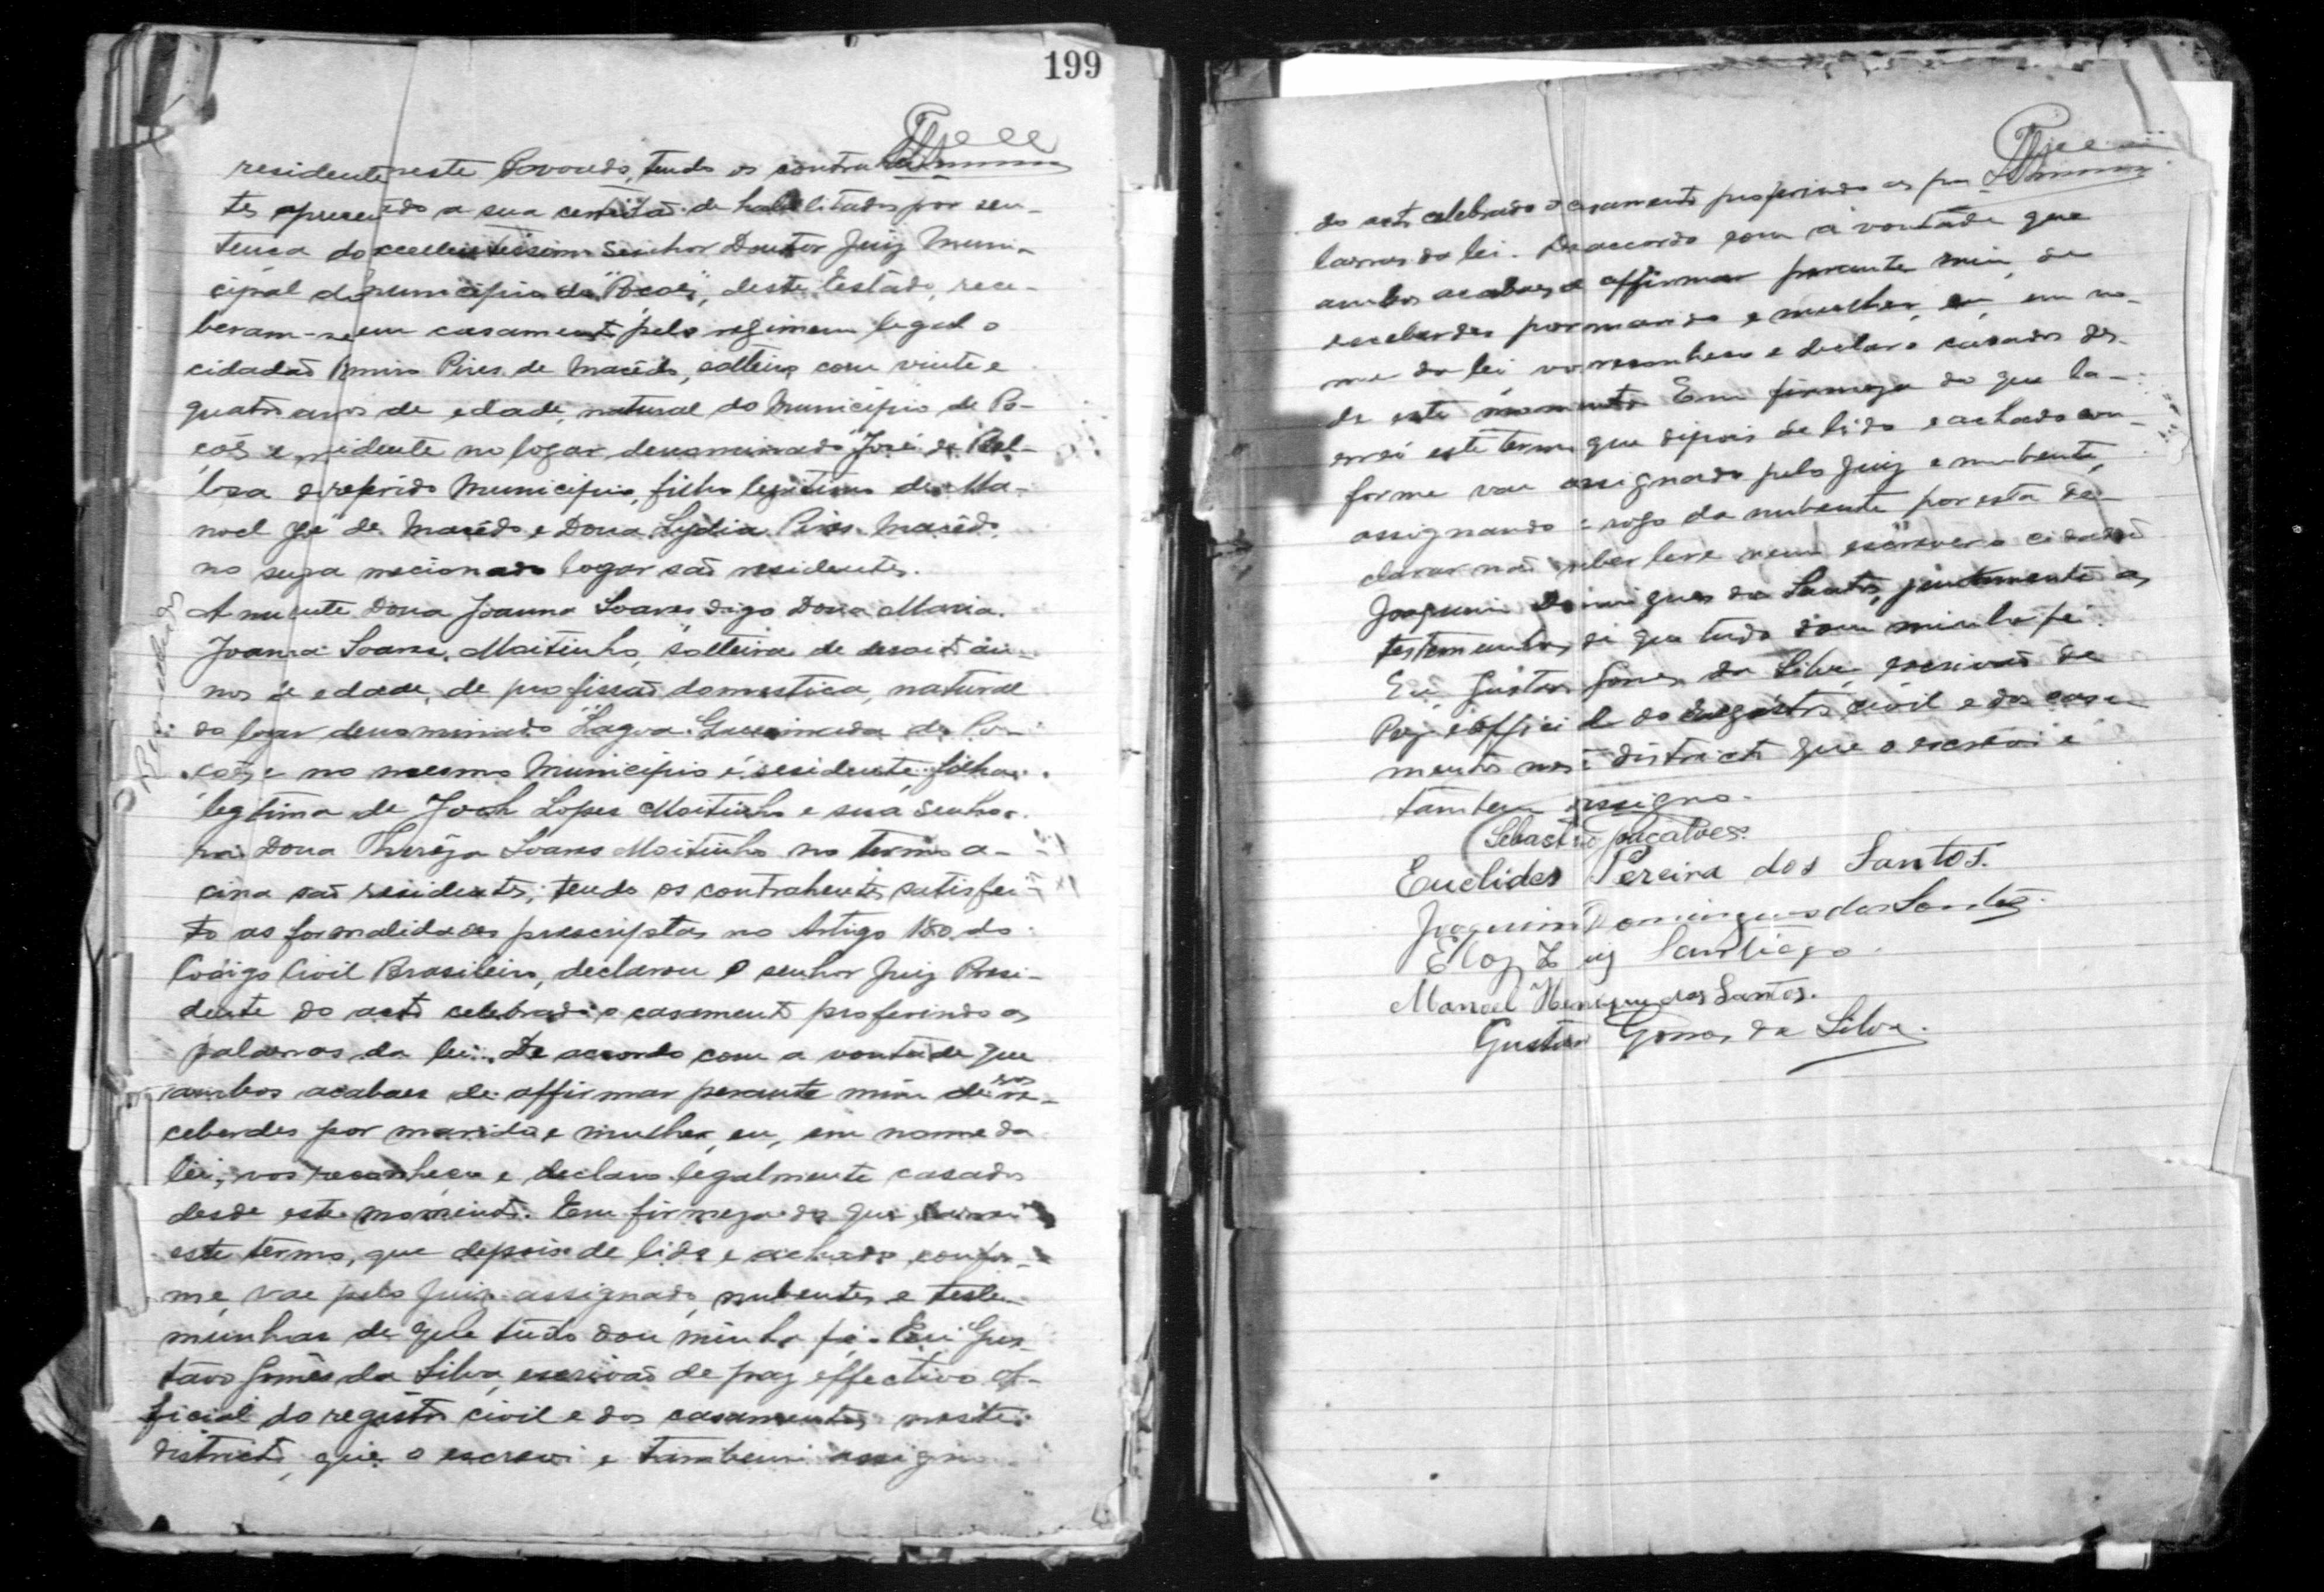 199
residente neste Povoado, tendo os contrahen
tes apresentado a sua certidão de habilitados por sen-
tença do excellentissimo Senhor Doutor Juiz Muni-
cipal do municipio de "Poções", deste Estado, rece-
beram-se em casamento pelo regimem legal o
cidadão Pires de Macêdo, solteiro com vinte e
quatro annos de edade, natural do Municipio de Po-
ções e residente no logar denominado José da
do referido Municipio, filho legitimo de Ma-
noel José de Macêdo e Dona Lydia Pires Macêdo,
no supra mecionado logar são residentes.
A nuente Dona Joanna Soares, digo Dona Maria
Joanna Soares Moitinho, solteira de desoito an-
nos de edade, de profissão domestica, natural
do logar denominado "Lagoa de Po-
ções e no mesmo Municipio é residente, filha
legtima de Lopes Moitinho e sua Senho-
ra Dona Thereza Soares Moitinho no termo a-
cima são residentes; tendo os contrahentes satisfei-
to as formalidades prescriptas no Artigo 180 do
Codigo Civil Brasileiro, declarou o senhor Juiz Presi-
dente do acto celebrado o casamento proferindo as
palavras da lei. De accordo com a vontade que
ambos acabaes de affirmar perante mim de vos re-
ceberdes por marido e mulher, eu, em nome da
lei, vos reconheço e declaro legalmente casados
desde este momento. Em firmeza do que lavrei
este termo, que depois de lido e achado confor-
me, vae pelo Juiz assignado, nubentes e teste-
munhas de que tudo dou minha fé. Eu Gus-
tavo Gomes da Silva, escrivão de paz effectivo of-
ficial do registro civil e dos casamentos neste
districto, que o escrevi e tambem assigno
do acto celebrado o casamento proferindo as pa
lavras da lei. De accordo com a vontade que
ambos acabaes de affirmar perante mim, de
receberdes por marido e mulher, eu, em no-
me da lei, vos reconheço e declaro casados des-
de este momento. Em firmeza do que la-
vrei este termo que depois de lido e achado con-
forme vae assignado pelo Juiz e nubente,
assignando a rogo da nubente por esta de-
clarar não saber lêr e nem escrever o cidadão
Joaquim Domingues dos Santos, juntamente as
testemunhas, di que tudo dou minha fé.
Eu Gustavo Gomes da Silva, escrivão de
Paz e official do registro civil e dos casa
mentos neste districto que o escrevi e
tambem assigno.
Sebastião Gonçalves.
Euclides Pereira dos Santos.
Joaquim Domingues dos Santos.
Eloy Luiz Santiago.
Manoel Henrique dos Santos.
Gustavo Gomes da Silva.